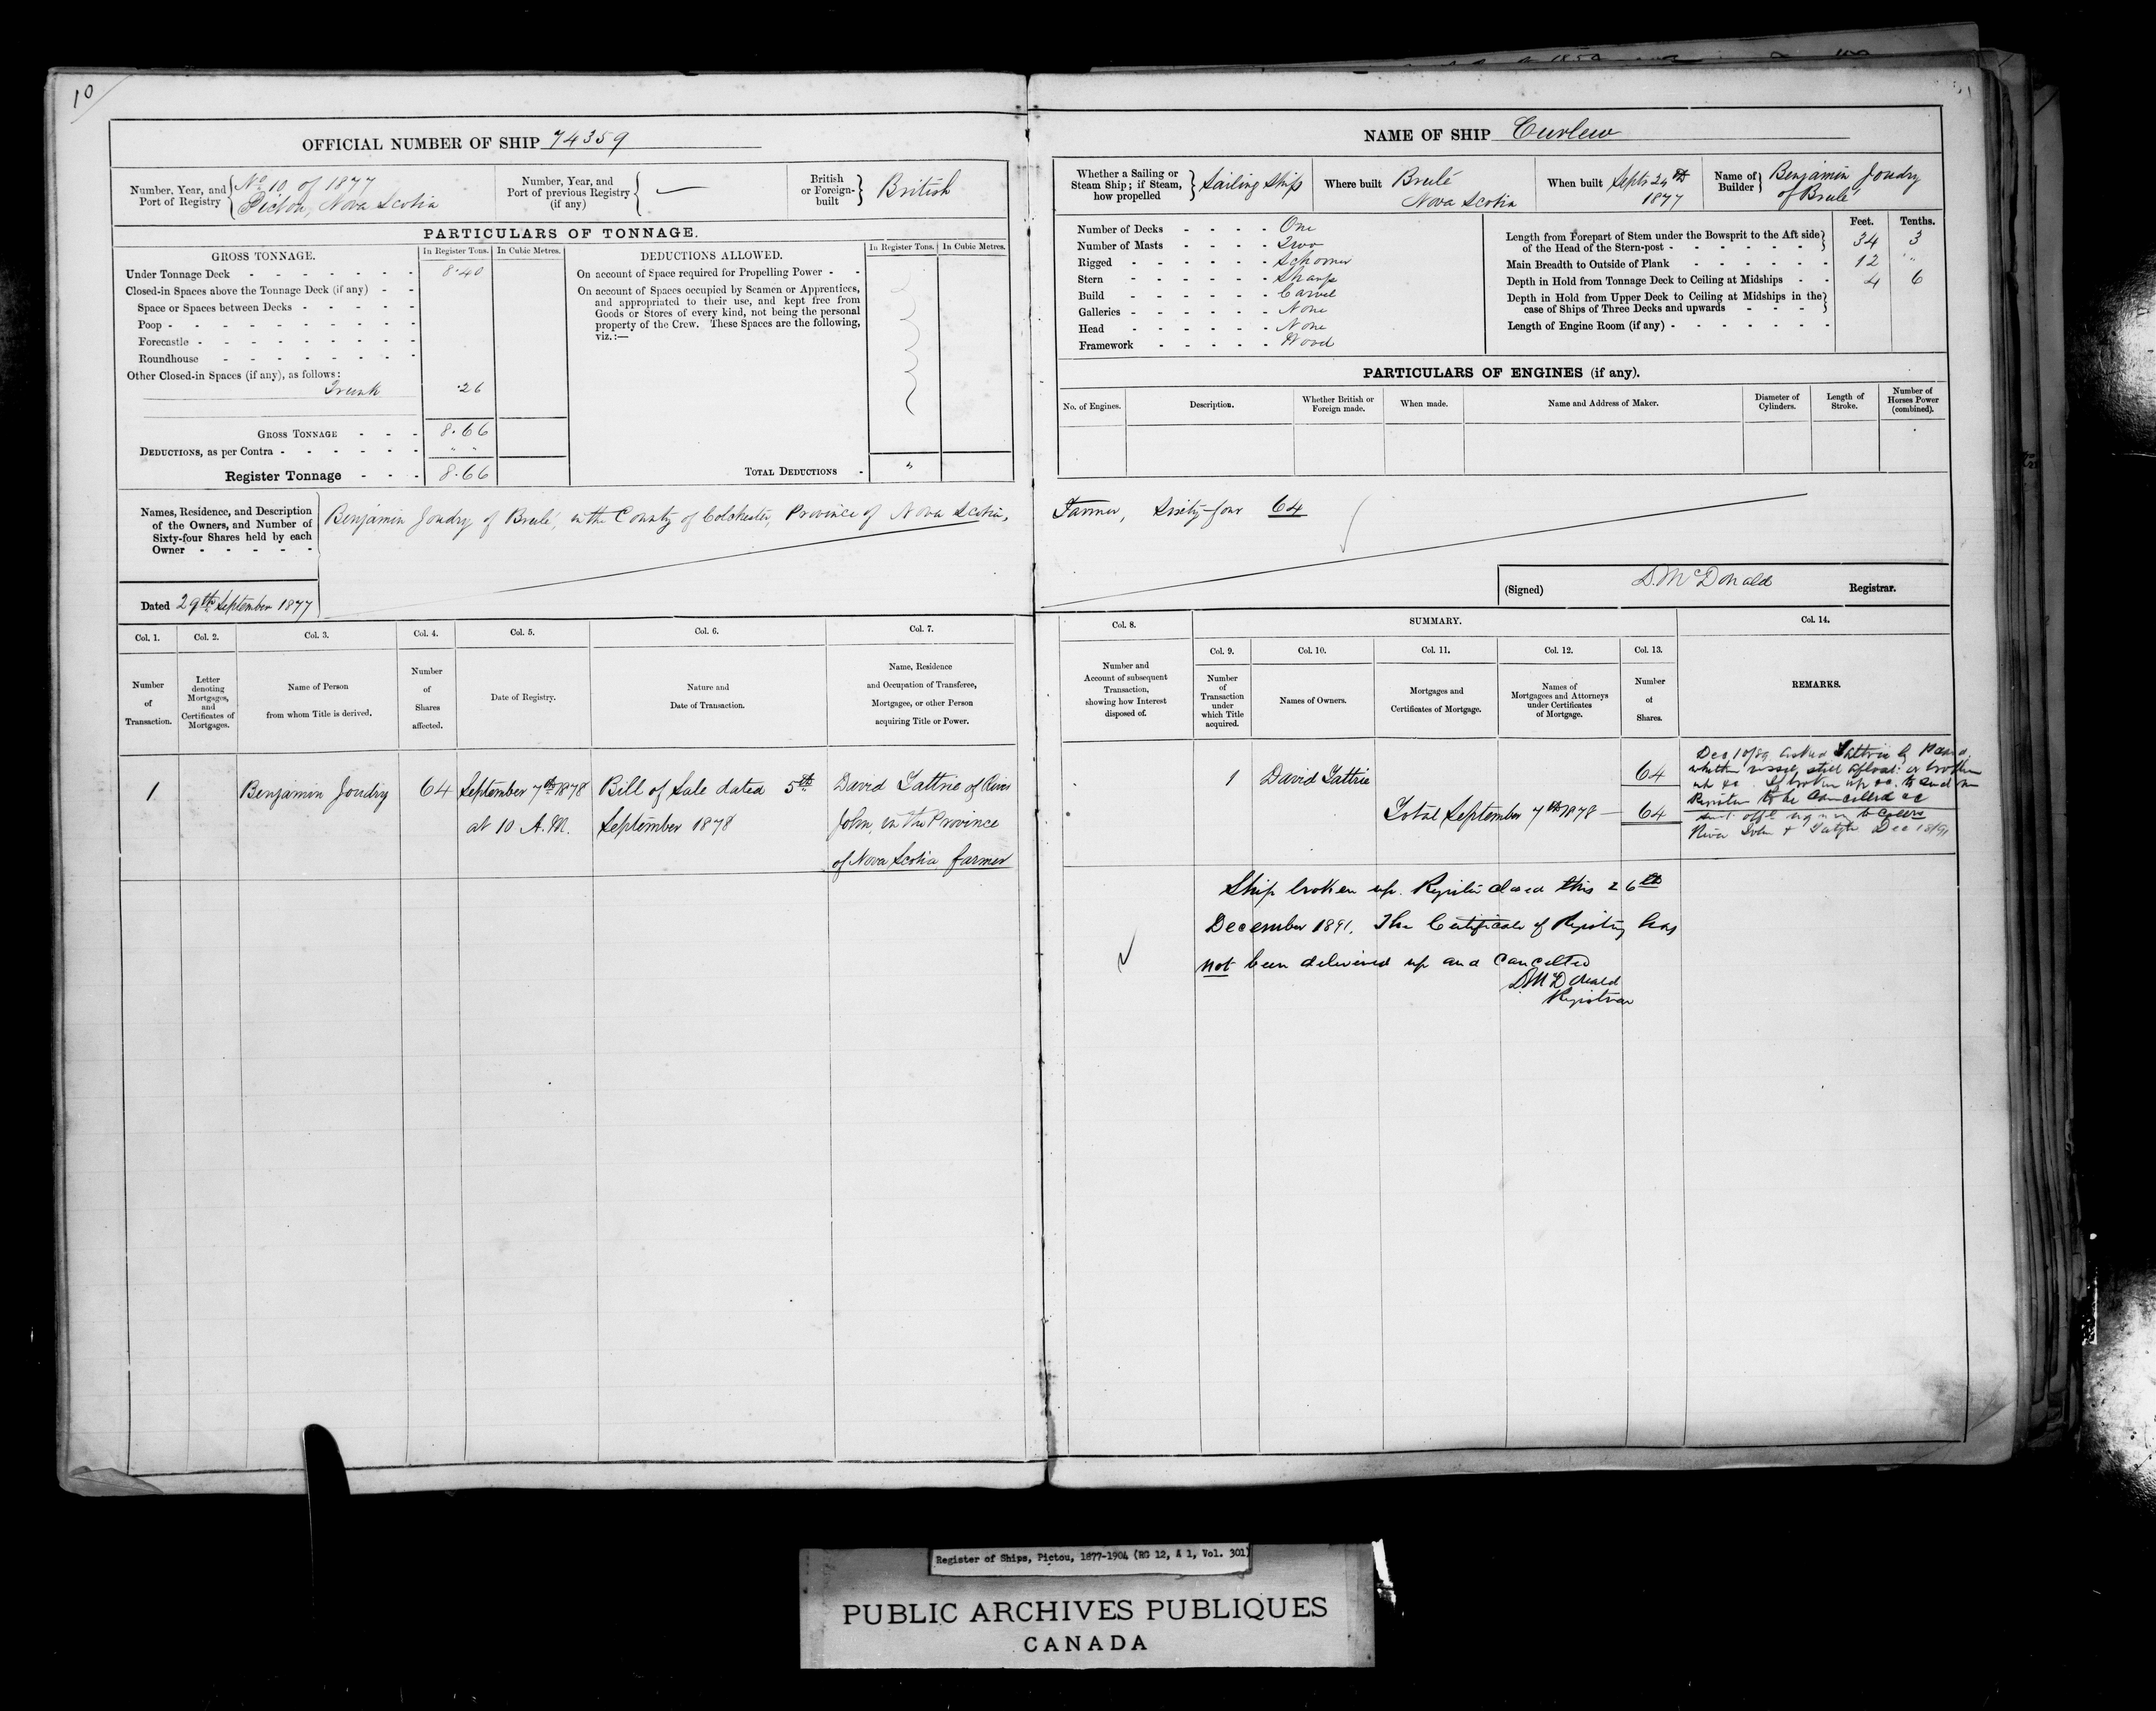 10
OFFICIAL NUMBER OF SHIP 74359
Number, Year, and Port of Registry
No 10 of 1877
Pictou, Nova Scotia
Number, Year, and Port of previous Registry (if any)
—
British or Foreign-built
British
PARTICULARS OF TONNAGE.
GROSS TONNAGE.
In Register Tons.
In Cubic Metres.
DEDUCTIONS ALLOWED.
In Register Tons.
In Cubic Metres.
Under Tonnage Deck - 8.40
Closed-in Spaces above the Tonnage Deck (if any) - -
Space or Spaces between Decks -
Poop -
Forecastle -
Roundhouse -
Other Closed-in Spaces (if any), as follows:
Trunk .26
GROSS TONNAGE - - - 8.66
DEDUCTIONS, as per Contra - " "
Register Tonnage - - - 8.66
On account of Space required for Propelling Power - -
On account of Spaces occupied by Seamen or Apprentices,
and appropriated to their use, and kept free from
Goods or Stores of every kind, not being the personal
property of the Crew. These Spaces are the following,
viz.:—
TOTAL DEDUCTIONS - "
Names, Residence, and Description
of the Owners, and Number of
Sixty-four Shares held by each
Owner - - - - -
Benjamin Joudry of Brulé, in the County of Colchester, Province of Nova Scotia,
Dated 29th September 1877
Col. 1.
Number of Transaction.
Col. 2.
Letter denoting Mortgages, and Certificates of Mortgages.
Col. 3.
Name of Person from whom Title is derived.
Col. 4.
Number of Shares affected.
Col. 5.
Date of Registry.
Col. 6.
Nature and Date of Transaction.
Col. 7.
Name, Residence and Occupation of Transferee, Mortgagee, or other Person acquiring Title or Power.
1
Benjamin Joudry
64
September 7th 1878
at 10 A.M.
Bill of Sale dated 5th
September 1878
David Tattrie of River
John, in the Province
of Nova Scotia farmer
NAME OF SHIP Curlew
Whether a Sailing or Steam Ship; if Steam, how propelled
Sailing Ship
Where built
Brulé
Nova Scotia
When built
Septr 24th
1877
Name of Builder
Benjamin Joudry
of Brulé
Number of Decks - - - - One
Number of Masts - - - - Two
Rigged - - - - - - Schooner
Stern - - - - - - Sharp
Build - - - - - - Carvel
Galleries - - - - - - None
Head - - - - - - None
Framework - - - - - Wood
Feet.
Tenths.
Length from Forepart of Stem under the Bowsprit to the Aft side
of the Head of the Stern-post - 34 3
Main Breadth to Outside of Plank - 12 "
Depth in Hold from Tonnage Deck to Ceiling at Midships - - 4 6
Depth in Hold from Upper Deck to Ceiling at Midships in the
case of Ships of Three Decks and upwards - - -
Length of Engine Room (if any) -
PARTICULARS OF ENGINES (if any).
No. of Engines.
Description.
Whether British or Foreign made.
When made.
Name and Address of Maker.
Diameter of Cylinders.
Length of Stroke.
Number of Horses Power (combined).
Farmer, Sixty-four 64
(Signed) D. McDonald Registrar.
Col. 8.
Number and Account of subsequent Transaction, showing how Interest disposed of.
SUMMARY.
Col. 9.
Number of Transaction under which Title acquired.
Col. 10.
Names of Owners.
Col. 11.
Mortgages and Certificates of Mortgage.
Col. 12.
Names of Mortgagees and Attorneys under Certificates of Mortgage.
Col. 13.
Number of Shares.
Col. 14.
REMARKS.
1 David Tattrie 64
Total September 7th 1878 — 64
Dec 10/89 asked Tattrie by
whether vessel still afloat or broken
up &c. If broken up &c. to send
Register to be Cancelled &c
River John & Dec
Ship broken up. Register closed this 26th
December 1891. The Certificate of Registry has
not been delivered up and cancelled
D McDonald
Registrar
Register of Ships, Pictou, 1877-1904 (RG 12, A 1, Vol. 301)
PUBLIC ARCHIVES PUBLIQUES
CANADA